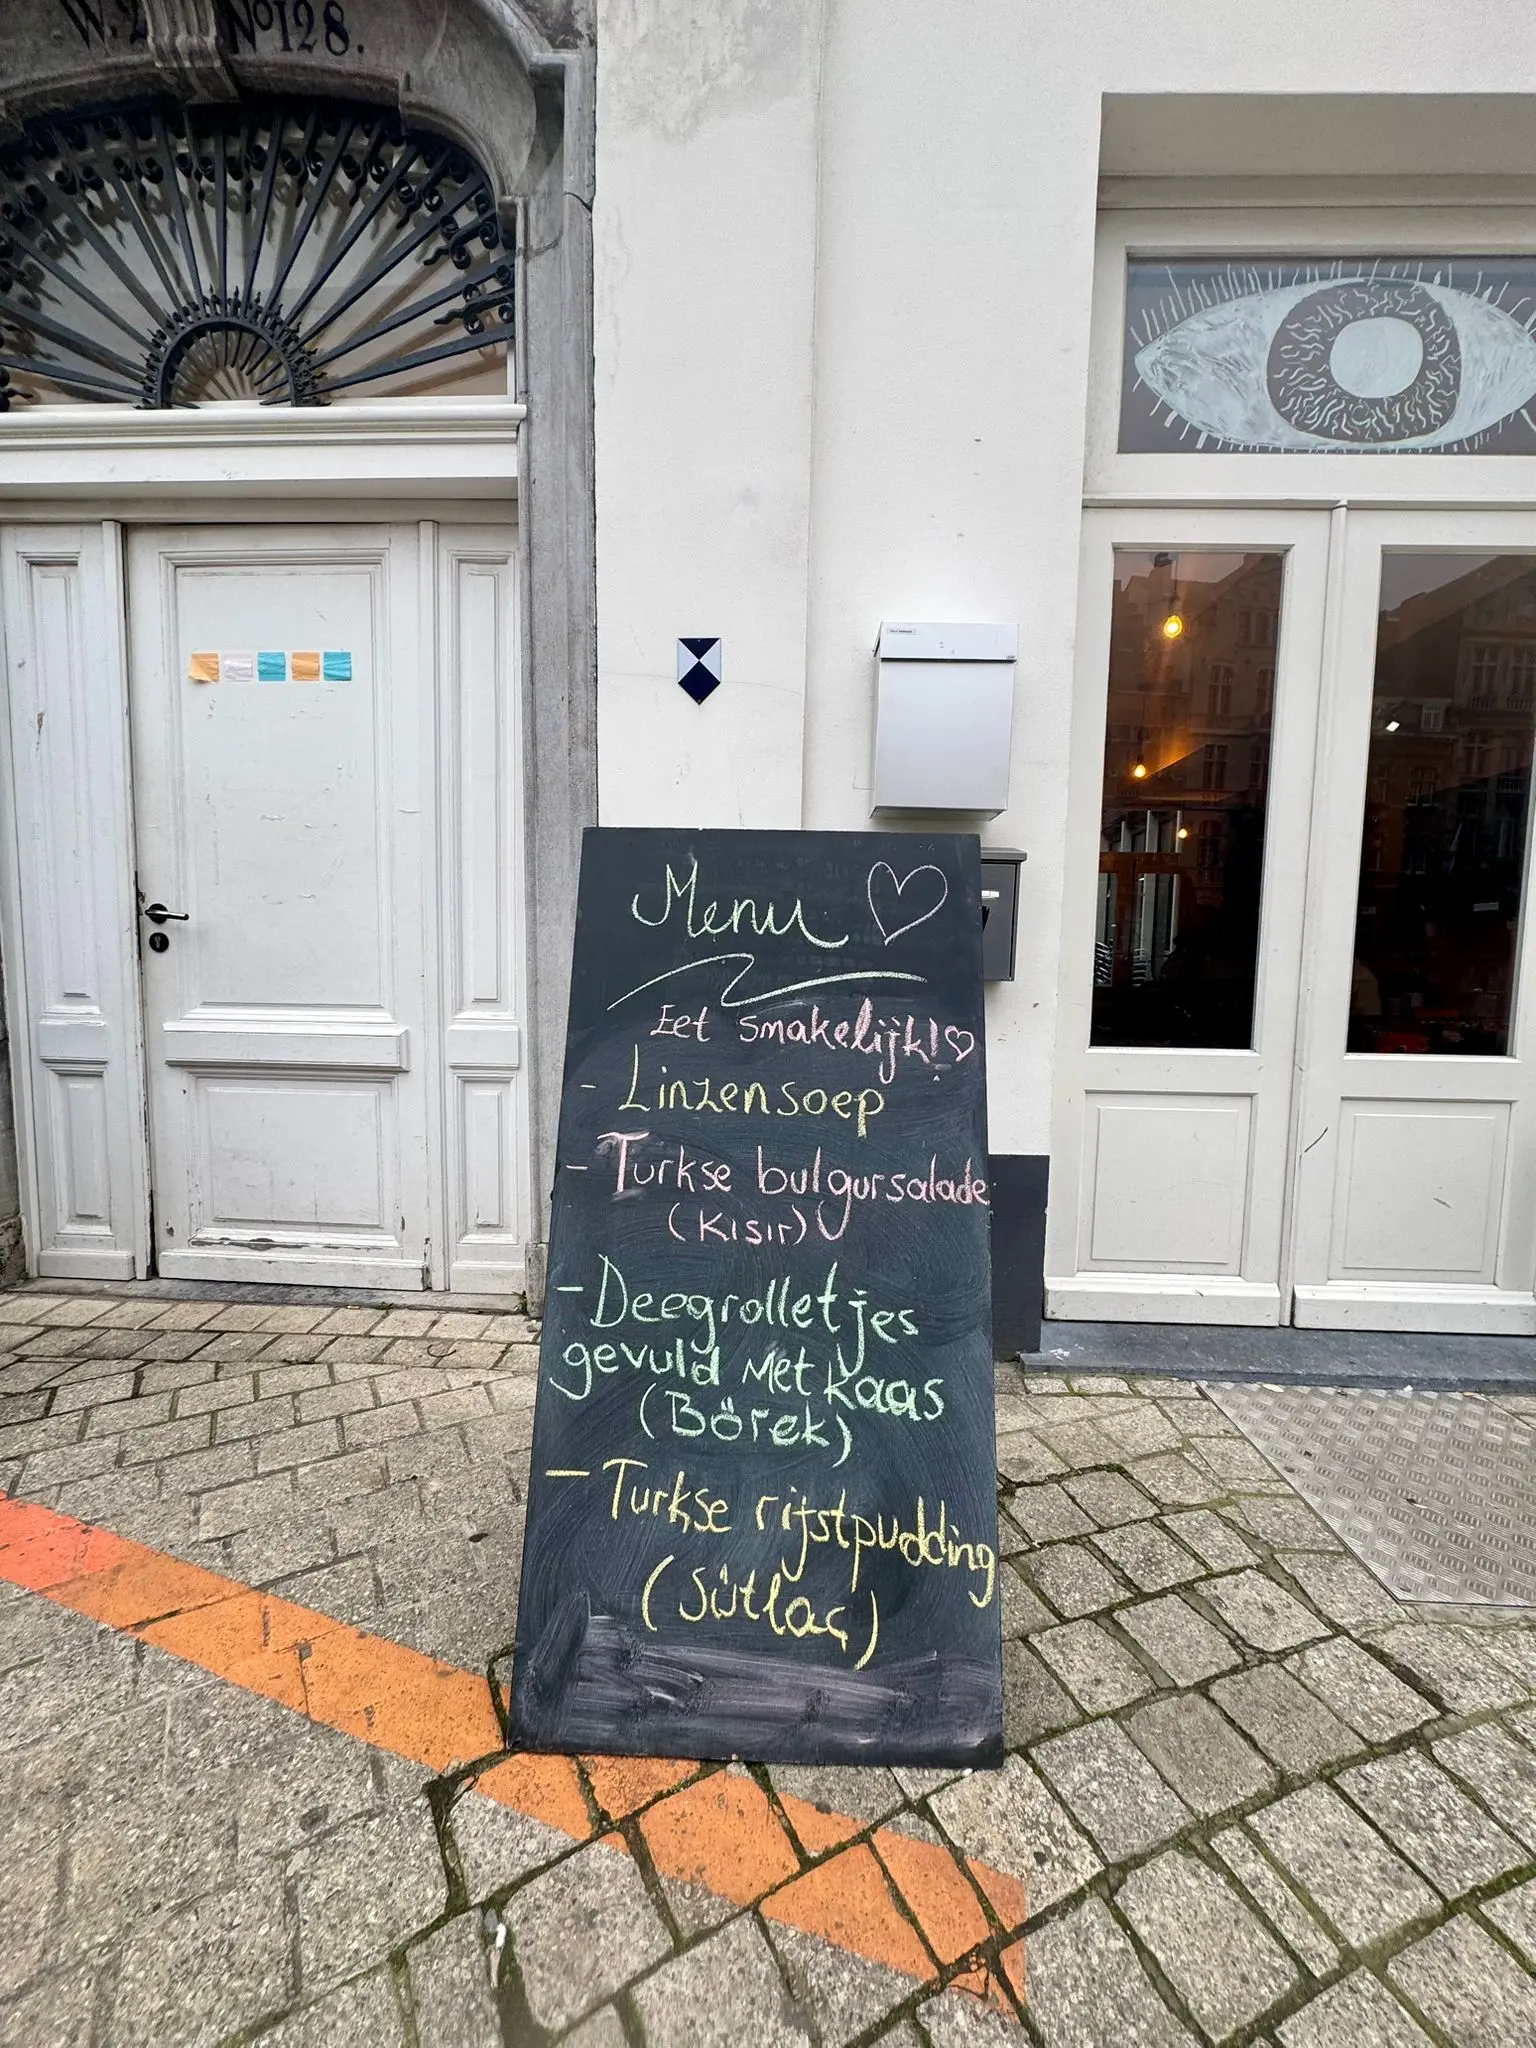 No128.
Menu
Eet smakelijk!
- Linzensoep
- Turkse bulgursalade
(Kısır)
- Deegrolletjes
gevuld met kaas
(Börek)
- Turkse rijstpudding
(Sütlaç)